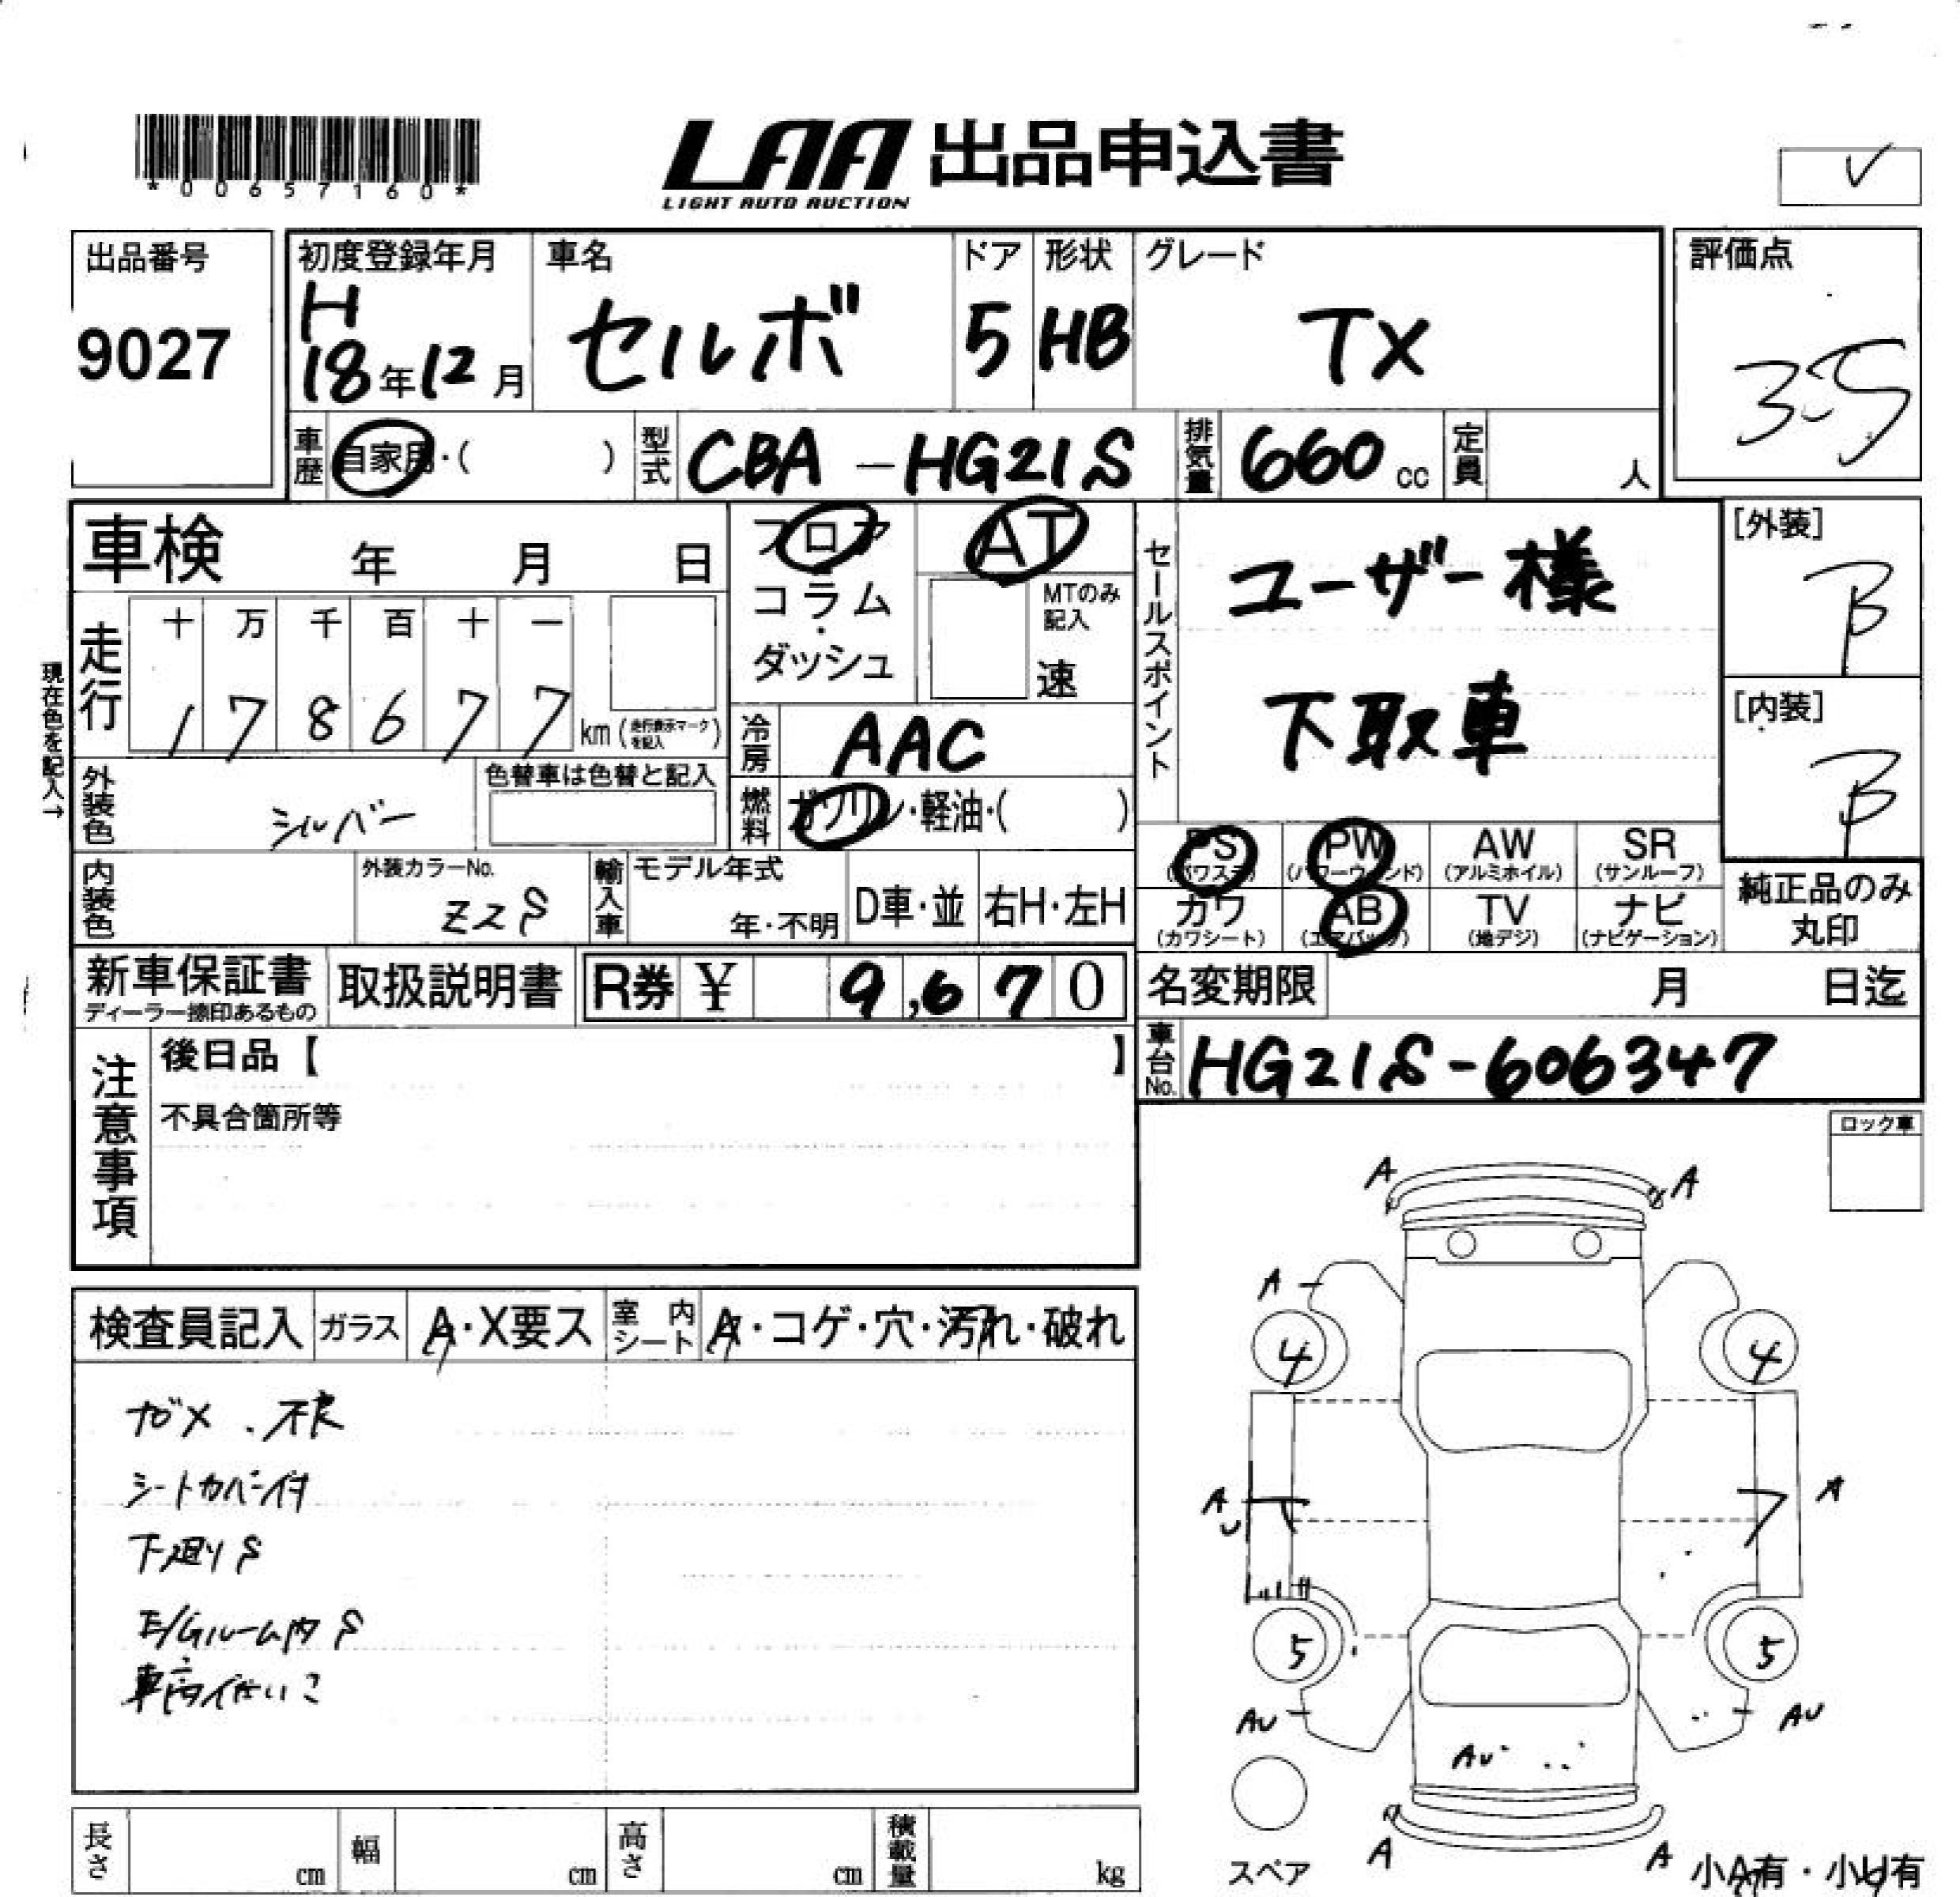 *00657160*
LAA 出品申込書
LIGHT AUTO AUCTION
✓
出品番号
9027
初度登録年月
H
18年12月
車名
セルボ
ドア
5
形状
HB
グレード
TX
評価点
3.5
車歴
自家用・( )
型式
CBA-HG21S
排気量
660 cc
定員
人
車検 年 月 日
フロア
コラム・
ダッシュ
AT
MTのみ
記入
速
セールスポイント
ユーザー様
下取車
[外装]
B
[内装]
B
現在色を記入→
走行
十 万 千 百 十 一
1 7 8 6 7 7 km (走行表示マークを記入)
冷房
AAC
外装色
シルバー
色替車は色替と記入
燃料
ガソリン・軽油・( )
PS
(パワステ)
PW
(パワーウィンド)
AW
(アルミホイル)
SR
(サンルーフ)
カワ
(カワシート)
AB
(エアバッグ)
TV
(地デジ)
ナビ
(ナビゲーション)
純正品のみ
丸印
内装色
外装カラーNo.
Z2S
輸入車
モデル年式
年・不明
D車・並
右H・左H
新車保証書
ディーラー捺印あるもの
取扱説明書
R券 ¥ 9,670
名変期限 月 日迄
車台No.
HG21S-606347
注意事項
後日品【 】
不具合箇所等
ロック車
検査員記入
ガラス
A・X要ス
室内シート
A・コゲ・穴・汚れ・破れ
ガメ.不良
シートカバー付
下廻りS
E/Gルーム内S
A A
A
4 4
A
U
A
5 5
AU AU
AU
A A
スペア
小A有・小U有
長さ cm
幅 cm
高さ cm
積載量 kg